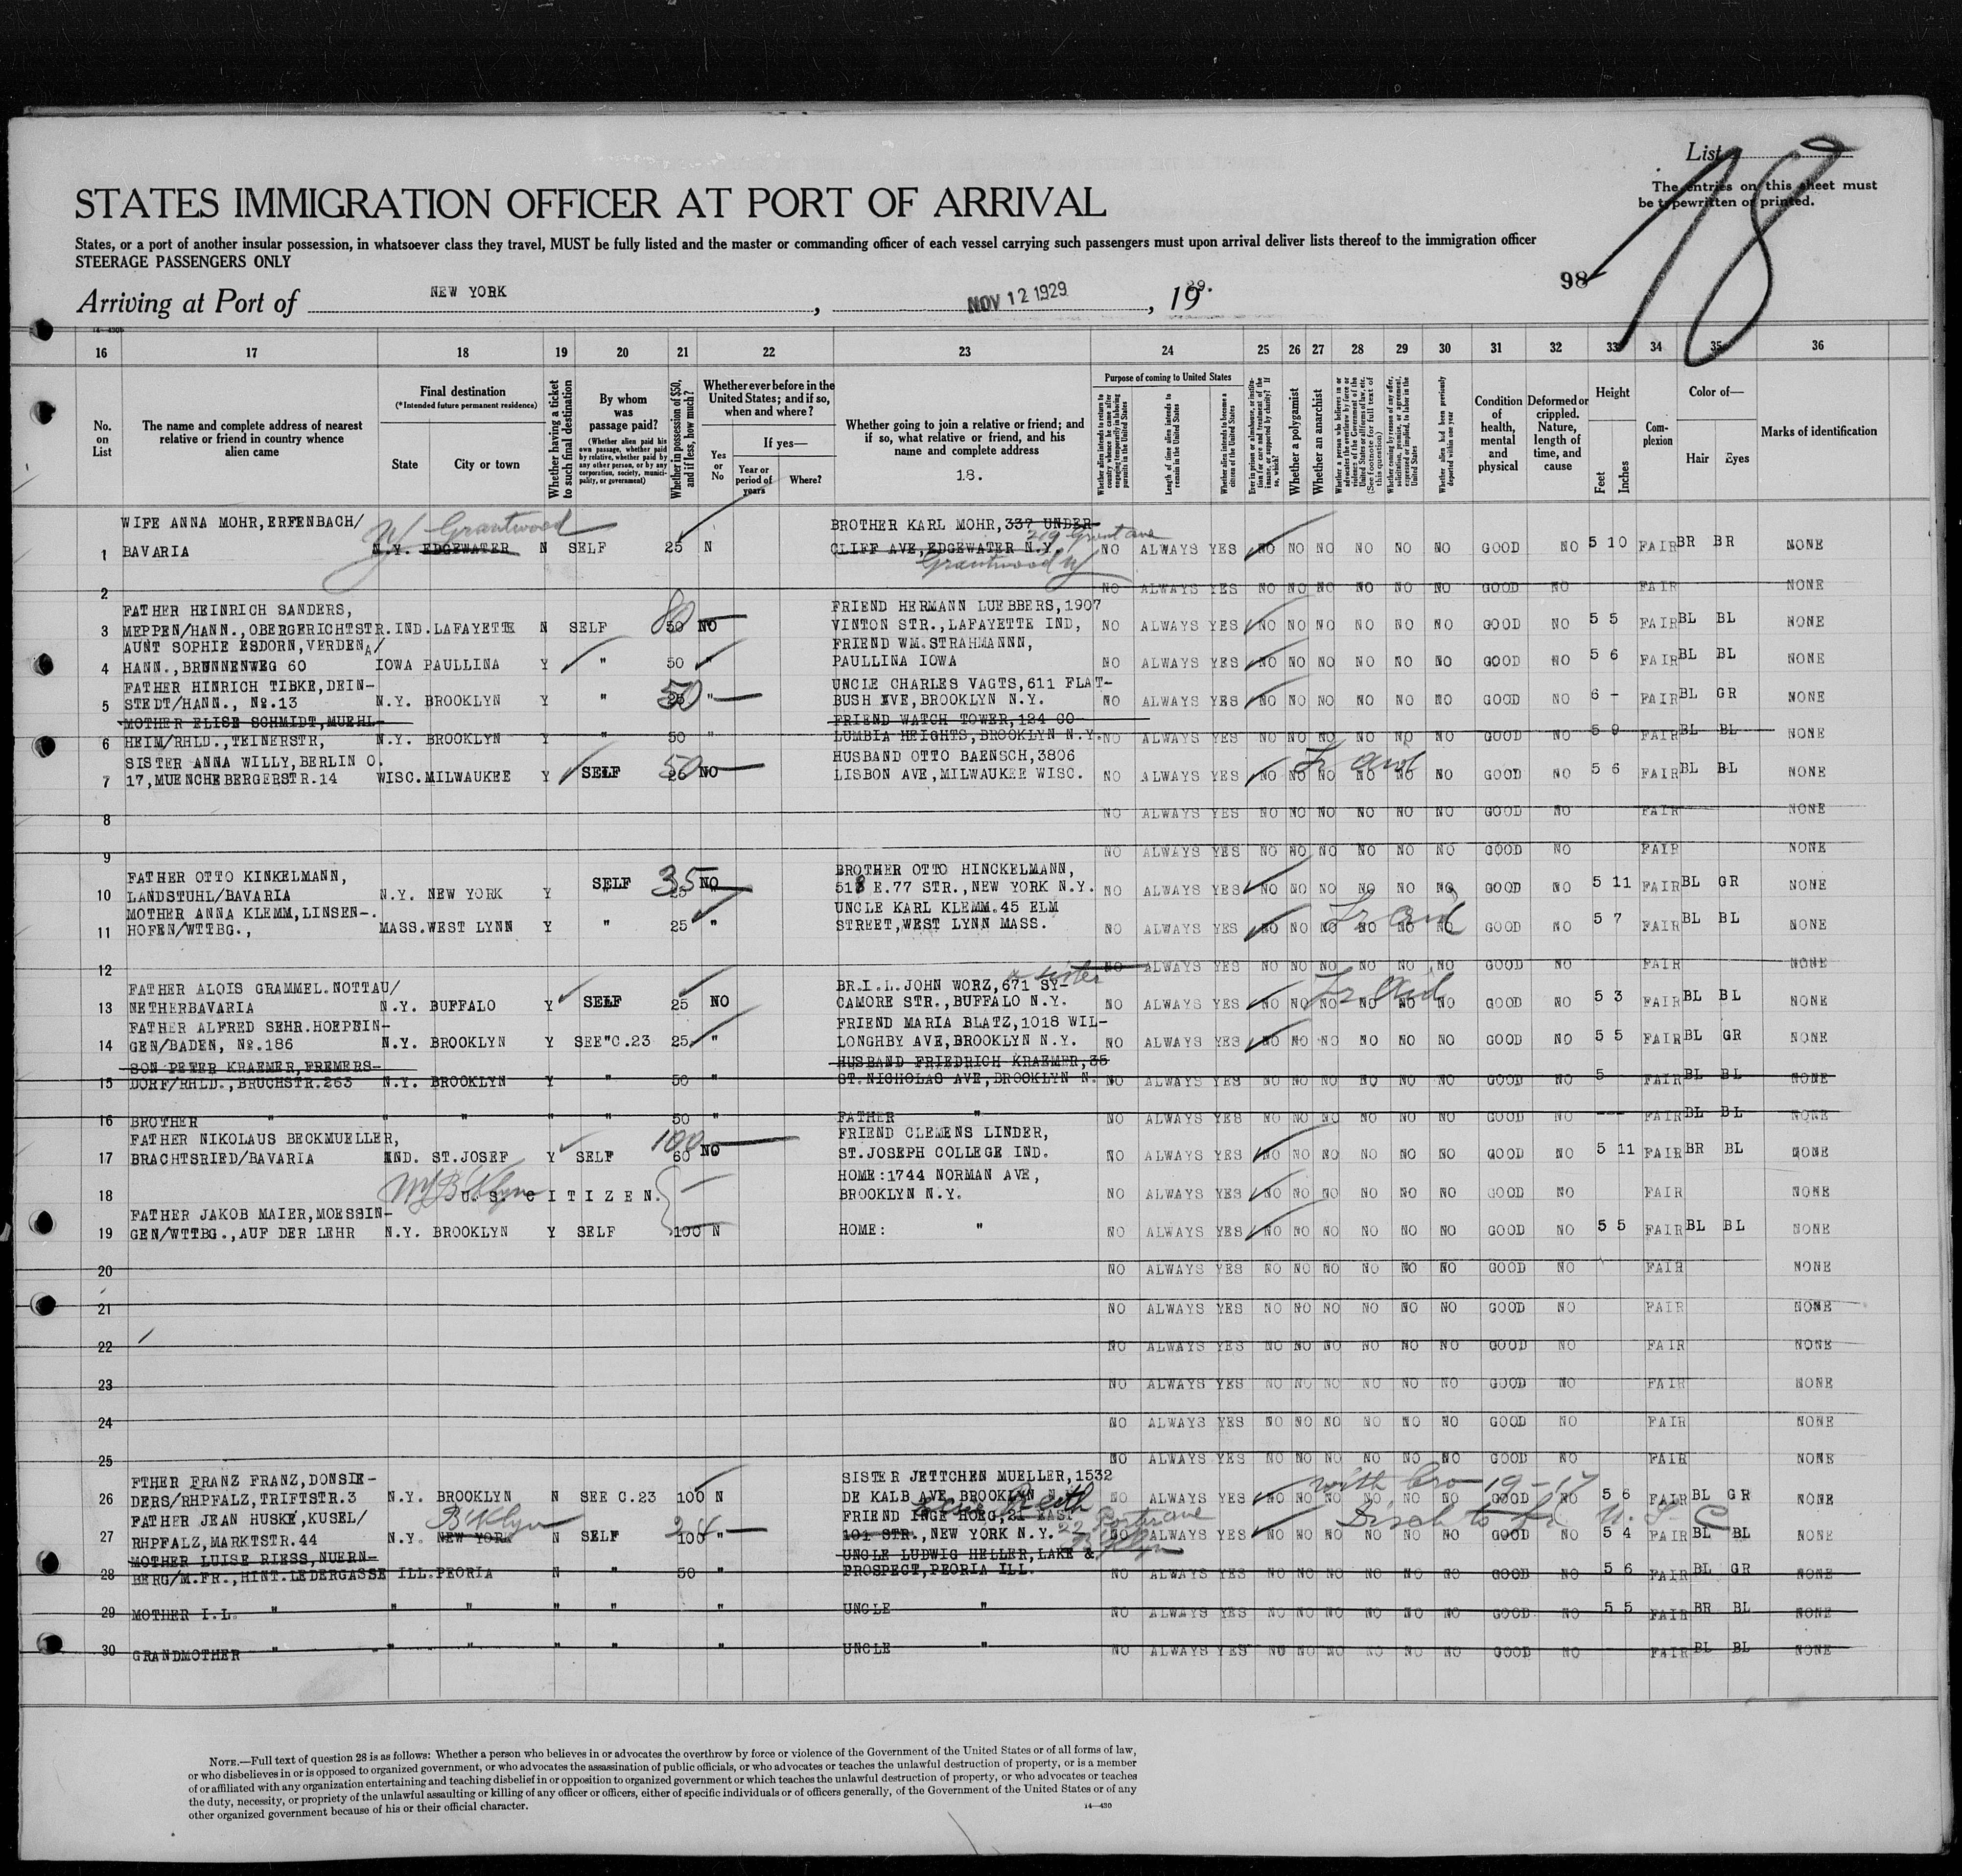 List
The entries on this sheet must
be typewritten or printed.
78
STATES IMMIGRATION OFFICER AT PORT OF ARRIVAL
States, or a port of another insular possession, in whatsoever class they travel, MUST be fully listed and the master or commanding officer of each vessel carrying such passengers must upon arrival deliver lists thereof to the immigration officer
STEERAGE PASSENGERS ONLY
98
Arriving at Port of NEW YORK , NOV 12 1929 , 19 29.
14—430
16 17 18 19 20 21 22 23 24 25 26 27 28 29 30 31 32 33 34 35 36
No. on List
The name and complete address of nearest relative or friend in country whence alien came
Final destination
(*Intended future permanent residence)
State
City or town
Whether having a ticket to such final destination
By whom was passage paid?
(Whether alien paid his own passage, whether paid by relative, whether paid by any other person, or by any corporation, society, municipality, or government)
Whether in possession of $50, and if less, how much?
Whether ever before in the United States; and if so, when and where?
Yes or No
If yes—
Year or period of years
Where?
Whether going to join a relative or friend; and if so, what relative or friend, and his name and complete address
18.
Purpose of coming to United States
Length of time alien intends to remain in the United States
Whether alien intends to become a citizen of the United States
Whether a polygamist
Whether an anarchist
Condition of health, mental and physical
Deformed or crippled. Nature, length of time, and cause
Height
Feet
Inches
Complexion
Color of—
Hair
Eyes
Marks of identification
WIFE ANNA MOHR,ERFENBACH/ Grantwood BROTHER KARL MOHR,337 UNDER-
1 BAVARIA N.Y. EDGEWATER N SELF 25 N CLIFF AVE,EDGEWATER N.Y. 219 Grant ave NO ALWAYS YES NO NO NO NO NO NO GOOD NO 5 10 FAIR BR BR NONE
Grantwood NJ
2 NO ALWAYS YES NO NO NO NO NO NO GOOD NO FAIR NONE
FATHER HEINRICH SANDERS, 80 FRIEND HERMANN LUEBBERS,1907
3 MEPPEN/HANN.,OBERGERICHTSTR. IND. LAFAYETTE N SELF 50 NO VINTON STR.,LAFAYETTE IND, NO ALWAYS YES NO NO NO NO NO NO GOOD NO 5 5 FAIR BL BL NONE
AUNT SOPHIE ESDORN,VERDEN A/ FRIEND WM.STRAHMANNN,
4 HANN.,BRUNNENWEG 60 IOWA PAULLINA Y " 50 " PAULLINA IOWA NO ALWAYS YES NO NO NO NO NO NO GOOD NO 5 6 FAIR BL BL NONE
FATHER HINRICH TIBKE,DEIN- 50 UNCLE CHARLES VAGTS,611 FLAT-
5 STEDT/HANN., No.13 N.Y. BROOKLYN Y " 25 " BUSH AVE,BROOKLYN N.Y. NO ALWAYS YES NO NO NO NO NO NO GOOD NO 6 - FAIR BL GR NONE
MOTHER ELISE SCHMIDT,MUEHL- FRIEND WATCH TOWER,124 CO-
6 HEIM/RHLD.,TEINERSTR, N.Y. BROOKLYN Y " 50 " LUMBIA HEIGHTS,BROOKLYN N.Y. NO ALWAYS YES NO NO NO NO NO NO GOOD NO 5 9 FAIR BL BL NONE
SISTER ANNA WILLY,BERLIN O. 50 HUSBAND OTTO BAENSCH,3806
7 17,MUENCHEBERGERSTR.14 WISC. MILWAUKEE Y SELF NO LISBON AVE,MILWAUKEE WISC. NO ALWAYS YES NO NO NO NO NO NO GOOD NO 5 6 FAIR BL BL NONE
8 NO ALWAYS YES NO NO NO NO NO NO GOOD NO FAIR NONE
9 NO ALWAYS YES NO NO NO NO NO NO GOOD NO FAIR NONE
FATHER OTTO KINKELMANN, SELF 35 NO BROTHER OTTO HINCKELMANN,
10 LANDSTUHL/BAVARIA N.Y. NEW YORK Y 25 " 518 E.77 STR.,NEW YORK N.Y. NO ALWAYS YES NO NO NO NO NO NO GOOD NO 5 11 FAIR BL GR NONE
MOTHER ANNA KLEMM,LINSEN-. UNCLE KARL KLEMM.45 ELM
11 HOFEN/WTTBG., MASS. WEST LYNN Y " 25 " STREET,WEST LYNN MASS. NO ALWAYS YES NO NO NO NO NO NO GOOD NO 5 7 FAIR BL BL NONE
12 NO ALWAYS YES NO NO NO NO NO NO GOOD NO FAIR NONE
FATHER ALOIS GRAMMEL.NOTTAU/ BR.I.L.JOHN WORZ,671 SY- sister
13 NETHERBAVARIA N.Y. BUFFALO Y SELF 25 NO CAMORE STR.,BUFFALO N.Y. NO ALWAYS YES NO NO NO NO NO NO GOOD NO 5 3 FAIR BL BL NONE
FATHER ALFRED SEHR.HOEPEIN- FRIEND MARIA BLATZ,1018 WIL-
14 GEN/BADEN, No.186 N.Y. BROOKLYN Y SEE"C.23 25 " LONGHBY AVE,BROOKLYN N.Y. NO ALWAYS YES NO NO NO NO NO NO GOOD NO 5 5 FAIR BL GR NONE
SON PETER KRAEMER,FREMERS- HUSBAND FRIEDRICH KRAEMER,35
15 DORF/RHLD.,BRUCHSTR.263 N.Y. BROOKLYN Y " 50 " ST.NICHOLAS AVE,BROOKLYN N. NO ALWAYS YES NO NO NO NO NO NO GOOD NO 5 FAIR BL BL NONE
16 BROTHER " " " " " 50 " FATHER " NO ALWAYS YES NO NO NO NO NO NO GOOD NO --- FAIR BL BL NONE
FATHER NIKOLAUS BECKMUELLER, 100 FRIEND CLEMENS LINDER,
17 BRACHTSRIED/BAVARIA IND. ST.JOSEF Y SELF 60 NO ST.JOSEPH COLLEGE IND. NO ALWAYS YES NO NO NO NO NO NO GOOD NO 5 11 FAIR BR BL NONE
HOME:1744 NORMAN AVE,
18 NY B'Klyn U.S. CITIZEN. BROOKLYN N.Y. NO ALWAYS YES NO NO NO NO NO NO GOOD NO FAIR NONE
FATHER JAKOB MAIER,MOESSIN-
19 GEN/WTTBG.,AUF DER LEHR N.Y. BROOKLYN Y SELF 100 N HOME: " NO ALWAYS YES NO NO NO NO NO NO GOOD NO 5 5 FAIR BL BL NONE
20 NO ALWAYS YES NO NO NO NO NO NO GOOD NO FAIR NONE
21 NO ALWAYS YES NO NO NO NO NO NO GOOD NO FAIR NONE
22 NO ALWAYS YES NO NO NO NO NO NO GOOD NO FAIR NONE
23 NO ALWAYS YES NO NO NO NO NO NO GOOD NO FAIR NONE
24 NO ALWAYS YES NO NO NO NO NO NO GOOD NO FAIR NONE
25 NO ALWAYS YES NO NO NO NO NO NO GOOD NO FAIR NONE
FTHER FRANZ FRANZ,DONSIE- SISTER JETTCHEN MUELLER,1532 with bro 19-17
26 DERS/RHPFALZ,TRIFTSTR.3 N.Y. BROOKLYN N SEE C.23 100 N DE KALB AVE,BROOKLYN N.Y. NO ALWAYS YES NO NO NO NO NO NO GOOD NO 5 6 FAIR BL GR NONE
FATHER JEAN HUSKE,KUSEL/ B'Klyn FRIEND INGE HOEG,21 EAST Disch to
27 RHPFALZ,MARKTSTR.44 N.Y. NEW YORK N SELF 100 " 101 STR.,NEW YORK N.Y. B'Klyn NO ALWAYS YES NO NO NO NO NO NO GOOD NO 5 4 FAIR BL BL NONE
MOTHER LUISE RIESS,NUERN- UNCLE LUDWIG HELLER,LAKE &
28 BERG/M.FR.,HINT.LEDERGASSE ILL. PEORIA N " 50 " PROSPECT,PEORIA ILL. NO ALWAYS YES NO NO NO NO NO NO GOOD NO 5 6 FAIR BL GR NONE
29 MOTHER I.L. " " " " " " UNCLE " NO ALWAYS YES NO NO NO NO NO NO GOOD NO 5 5 FAIR BR BL NONE
30 GRANDMOTHER " " " " " " UNCLE " NO ALWAYS YES NO NO NO NO NO NO GOOD NO FAIR BL BL NONE
NOTE.—Full text of question 28 is as follows: Whether a person who believes in or advocates the overthrow by force or violence of the Government of the United States or of all forms of law,
or who disbelieves in or is opposed to organized government, or who advocates the assassination of public officials, or who advocates or teaches the unlawful destruction of property, or is a member
of or affiliated with any organization entertaining and teaching disbelief in or opposition to organized government or which teaches the unlawful destruction of property, or who advocates or teaches
the duty, necessity, or propriety of the unlawful assaulting or killing of any officer or officers, either of specific individuals or of officers generally, of the Government of the United States or of any
other organized government because of his or their official character.
14—430